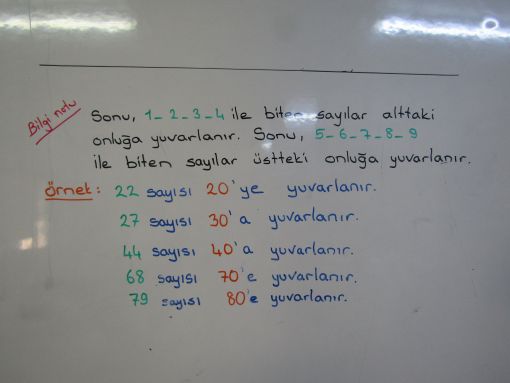 Bilgi notu
Sonu, 1-2-3-4 ile biten sayılar alttaki
onluğa yuvarlanır. Sonu, 5-6-7-8-9
ile biten sayılar üstteki onluğa yuvarlanır.
örnek: 22 sayısı 20'ye yuvarlanır.
27 sayısı 30'a yuvarlanır.
44 sayısı 40'a yuvarlanır.
68 sayısı 70'e yuvarlanır.
79 sayısı 80'e yuvarlanır.